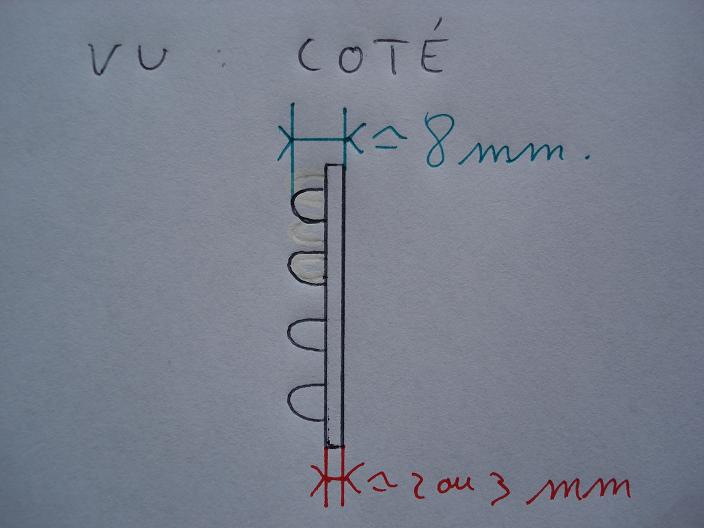 VU : COTÉ
≃ 8 mm.
≃ 2 ou 3 mm